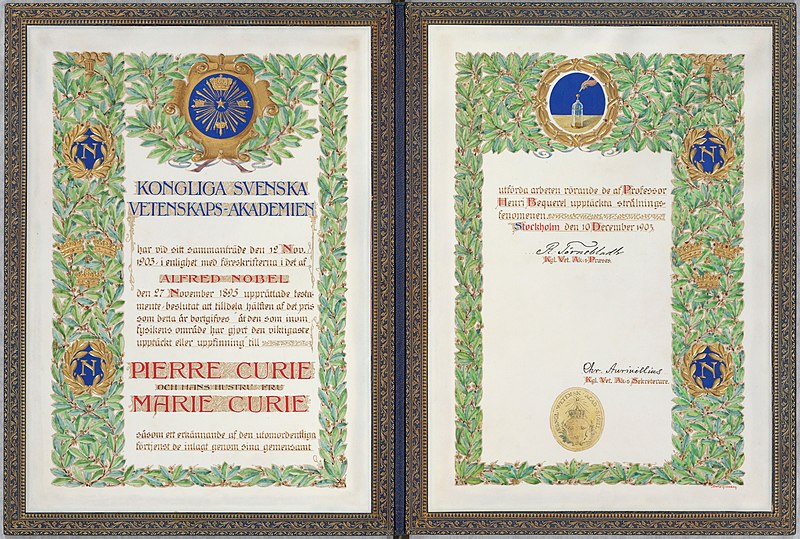 KONGLIGA SVENSKA
VETENSKAPS-AKADEMIEN
har vid sitt sammanträde den 12 Nov.
1903 i enlighet med föreskrifterna i det af
ALFRED NOBEL
den 27 November 1895 upprättade testa-
mente beslutat att tilldela hälften af det pris
som detta år bortgifves åt den som inom
fysikens område har gjort den viktigaste
upptäckt eller uppfinning till
PIERRE CURIE
OCH HANS HUSTRU FRU
MARIE CURIE
såsom ett erkännande af den utomordentliga
förtjenst de inlagt genom sina gemensamt
N
N
utförda arbeten rörande de af Professor
Henri Bequerel upptäckta strålnings-
fenomenen
Stockholm den 10 December 1903.
R Törnebladh
Kgl. Vet. Ak:s Præses.
Chr. Aurivillius
Kgl. Vet. Ak:s Sekreterare.
N
N